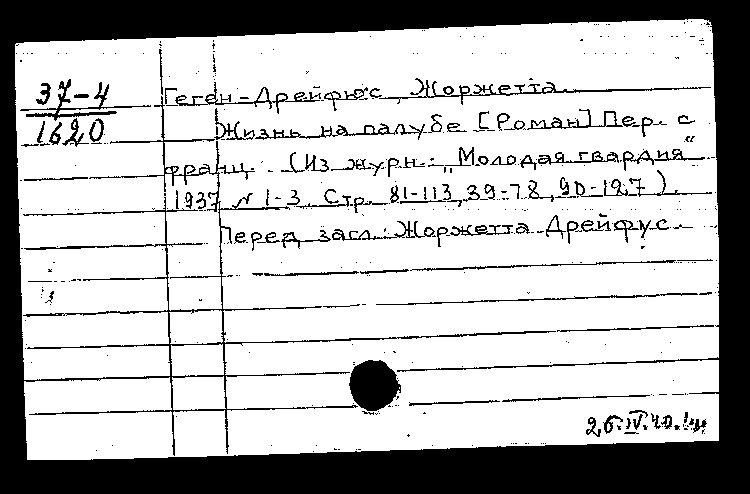 37-4
1620
Геген-Дрейфюс, Жоржетта.
Жизнь на палубе [Роман] Пер. с
франц. (Из журн.: „Молодая гвардия“
1937 N 1-3. Стр. 81-113, 39-78, 90-127).
Перед загл.: Жоржетта Дрейфус.
26.IV.40.